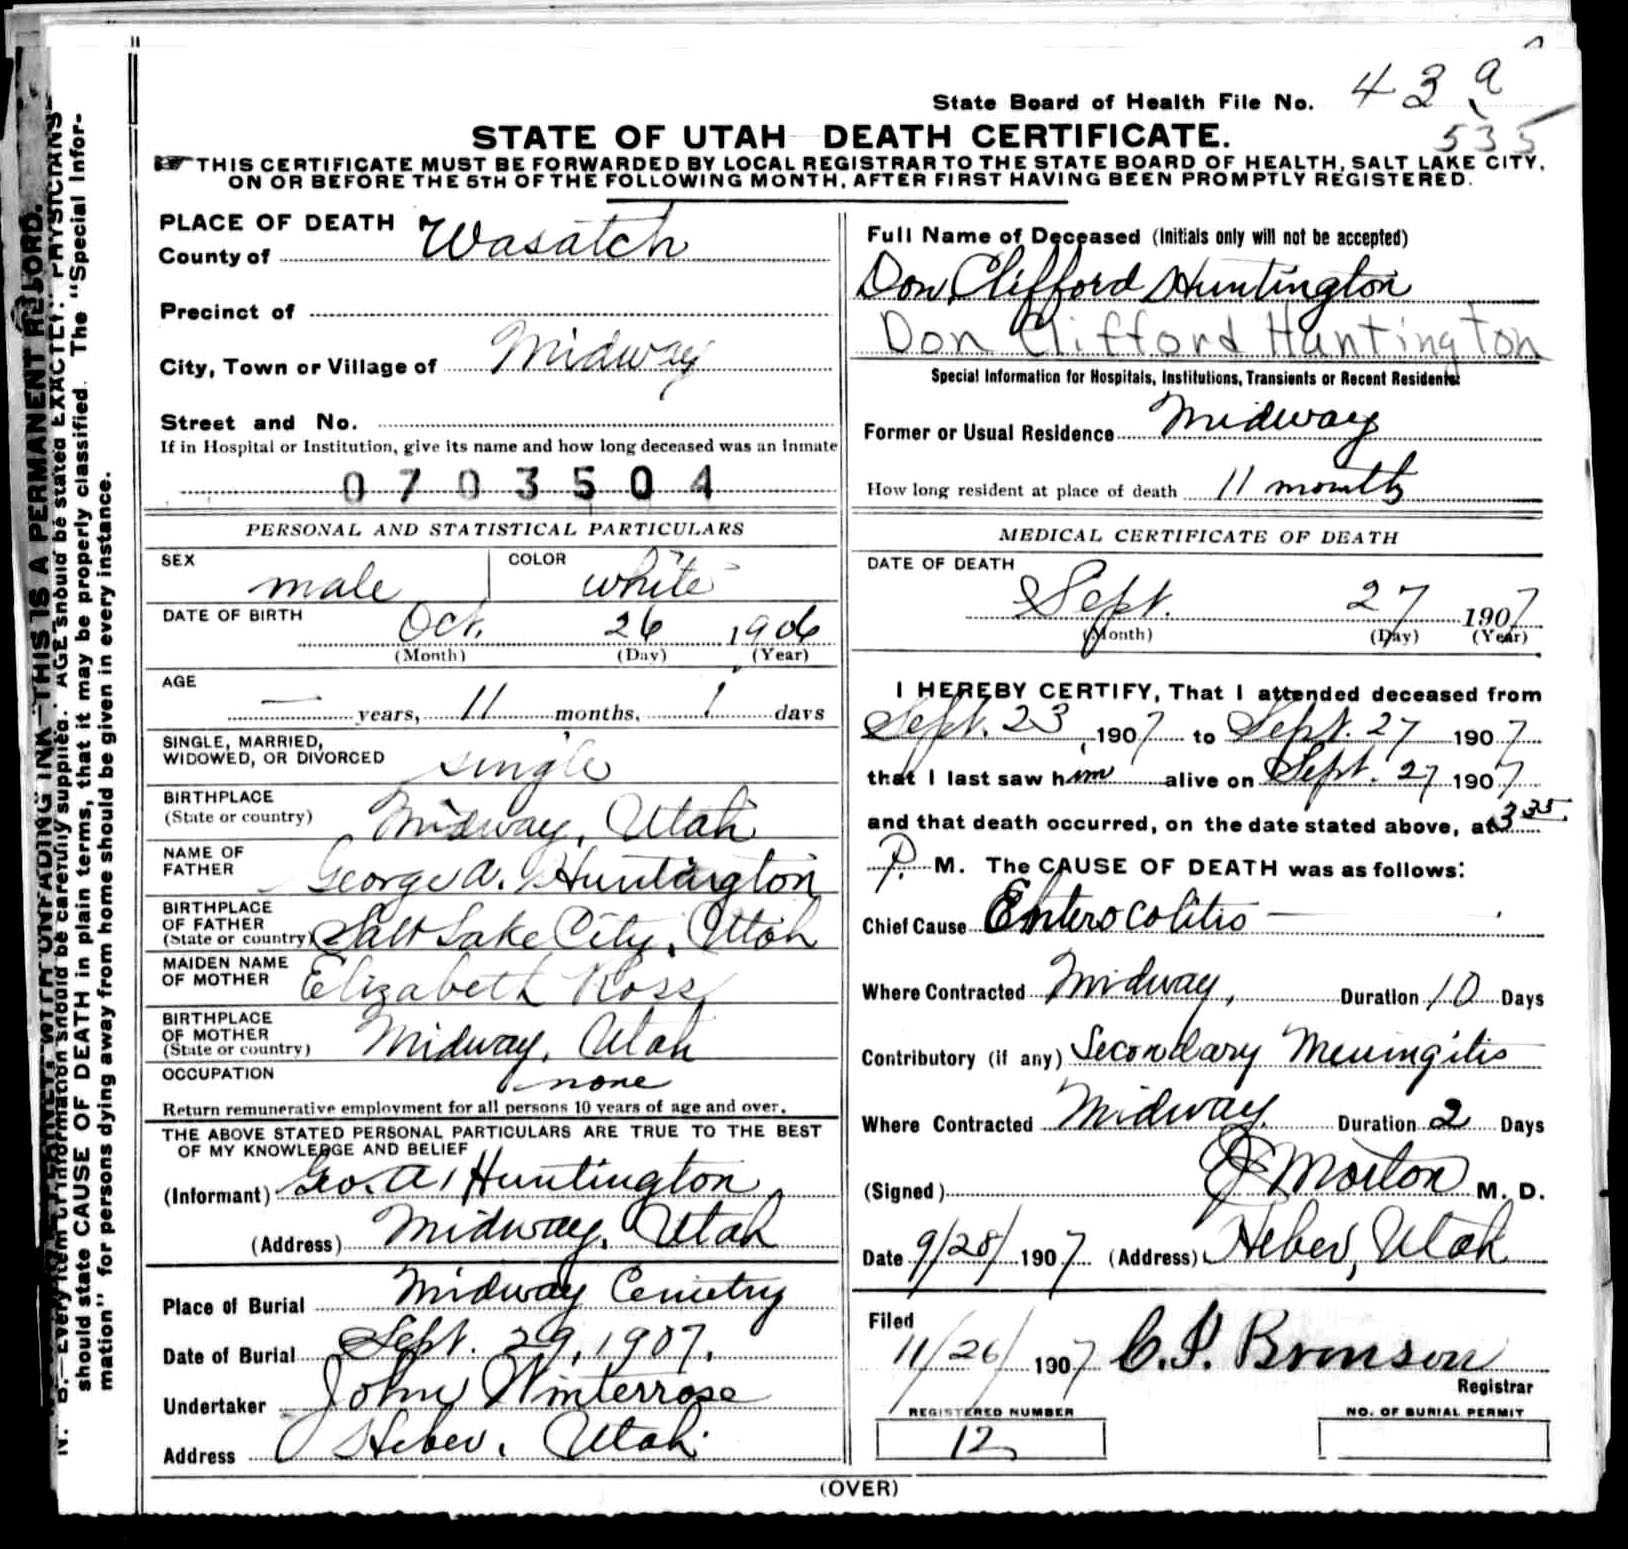 State Board of Health File No. 43a
535
STATE OF UTAH DEATH CERTIFICATE.
THIS CERTIFICATE MUST BE FORWARDED BY LOCAL REGISTRAR TO THE STATE BOARD OF HEALTH, SALT LAKE CITY,
ON OR BEFORE THE 5TH OF THE FOLLOWING MONTH, AFTER FIRST HAVING BEEN PROMPTLY REGISTERED.
PLACE OF DEATH
County of Wasatch
Precinct of
City, Town or Village of Midway
Street and No.
If in Hospital or Institution, give its name and how long deceased was an inmate
0703504
PERSONAL AND STATISTICAL PARTICULARS
SEX male COLOR white
DATE OF BIRTH Oct. 26 1906
(Month) (Day) (Year)
AGE
— years, 11 months, 1 days
SINGLE, MARRIED,
WIDOWED, OR DIVORCED single
BIRTHPLACE
(State or country) Midway, Utah
NAME OF
FATHER George A. Huntington
BIRTHPLACE
OF FATHER
(State or country) Salt Lake City, Utah
MAIDEN NAME
OF MOTHER Elizabeth Ross
BIRTHPLACE
OF MOTHER
(State or country) Midway, Utah
OCCUPATION none
Return remunerative employment for all persons 10 years of age and over.
THE ABOVE STATED PERSONAL PARTICULARS ARE TRUE TO THE BEST
OF MY KNOWLEDGE AND BELIEF
(Informant) Geo. A. Huntington
(Address) Midway, Utah
Place of Burial Midway Cemetry
Date of Burial Sept. 29, 1907.
Undertaker John Winterrose
Address Heber, Utah.
Full Name of Deceased (Initials only will not be accepted)
Don Clifford Huntington
Don Clifford Huntington
Special Information for Hospitals, Institutions, Transients or Recent Residents:
Former or Usual Residence Midway
How long resident at place of death 11 months
MEDICAL CERTIFICATE OF DEATH
DATE OF DEATH
Sept. 27 1907
(Month) (Day) (Year)
I HEREBY CERTIFY, That I attended deceased from
Sept. 23, 1907 to Sept. 27 1907
that I last saw him alive on Sept. 27 1907
and that death occurred, on the date stated above, at 3 35
P. M. The CAUSE OF DEATH was as follows:
Chief Cause Enterocolitis
Where Contracted Midway, Duration 10 Days
Contributory (if any) Secondary Meningitis
Where Contracted Midway. Duration 2 Days
(Signed) Morton M. D.
Date 9/28/1907 (Address) Heber, Utah
Filed
11/26/1907 C. I. Bronson
Registrar
REGISTERED NUMBER
12
NO. OF BURIAL PERMIT
(OVER)
THIS IS A PERMANENT RECORD.
AGE should be stated EXACTLY. PHYSICIANS
should state CAUSE OF DEATH in plain terms, that it may be properly classified. The "Special Infor-
mation" for persons dying away from home should be given in every instance.